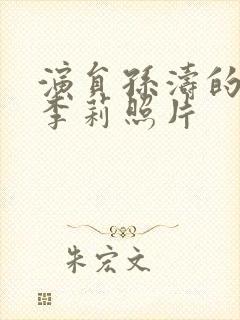 演员孙涛的
李莉照片
朱宏文